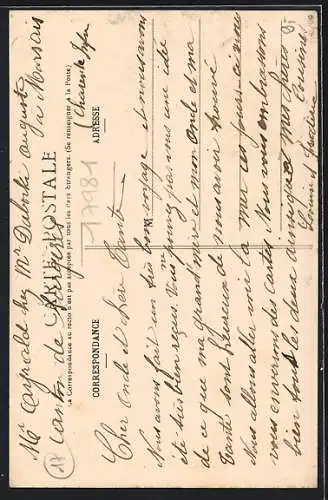 Mr Carpolde chez Mr Dubois auguste
Canton de
à Marsais
Charente Infre
CARTE POSTALE
La Correspondance au recto n'est pas acceptée par tous les Pays étrangers. (Se renseigner à la Poste)
CORRESPONDANCE
ADRESSE
17981
17
Cher Oncle et chère Tante
Nous avons fait un très bon voyage et nous avons
été très bien reçus. Vous ne pouvez pas vous une idée
de ce que ma grand mère et mon Oncle et ma
Tante sont heureux de nous avoir trouvé
Nous allons aller voir la mer ces jours ci nous
vous enverrons des cartes. Nous vous embrassons
bien tous les deux ainsi que mes frères et
Cousines